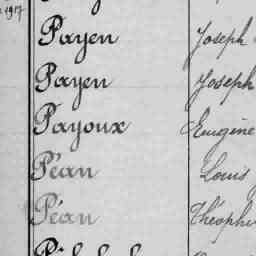 1917
Payen Joseph
Payen Joseph
Payoux Eugène
Péan Louis
Péan